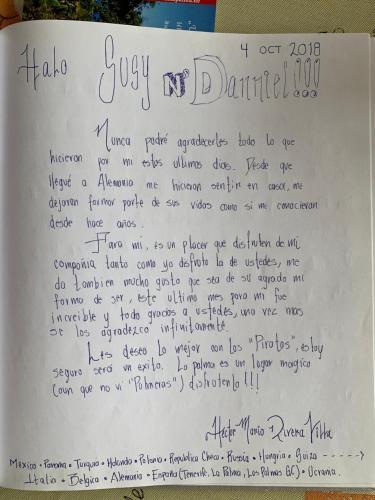 4 OCT 2018
Halo Susy N' Danniel!!!
Nunca podré agradecerles todo lo que
hicieran por mi estos ultimos dias. Desde que
llegué a Alemania me hicieran sentir en casa, me
dejaran formar parte de sus vidas como si me conocieran
desde hace años.
Para mi, es un placer que disfruten de mi
compañia tanto como yo disfruto la de ustedes, me
da tambien mucho gusto que sea de su agrado mi
forma de ser, este ultimo mes para mi fue
increible y todo gracias a ustedes, una vez mas
se los agradezco infinitamente.
Les deseo lo mejor con los "Piratas", estoy
seguro será un exito. La palma es un lugar magico
(aun que no vi "Palmeras") disfrutenlo!!!
Hector Mario Rivera Villa
Mexico • Panama • Turquia • Holanda • Polonia • Republica Checa • Rusia • Hungria • Suiza ---->
Italia • Belgica • Alemania • España (Tenerife, La Palma, Las Palmas GC) • Ucrania.